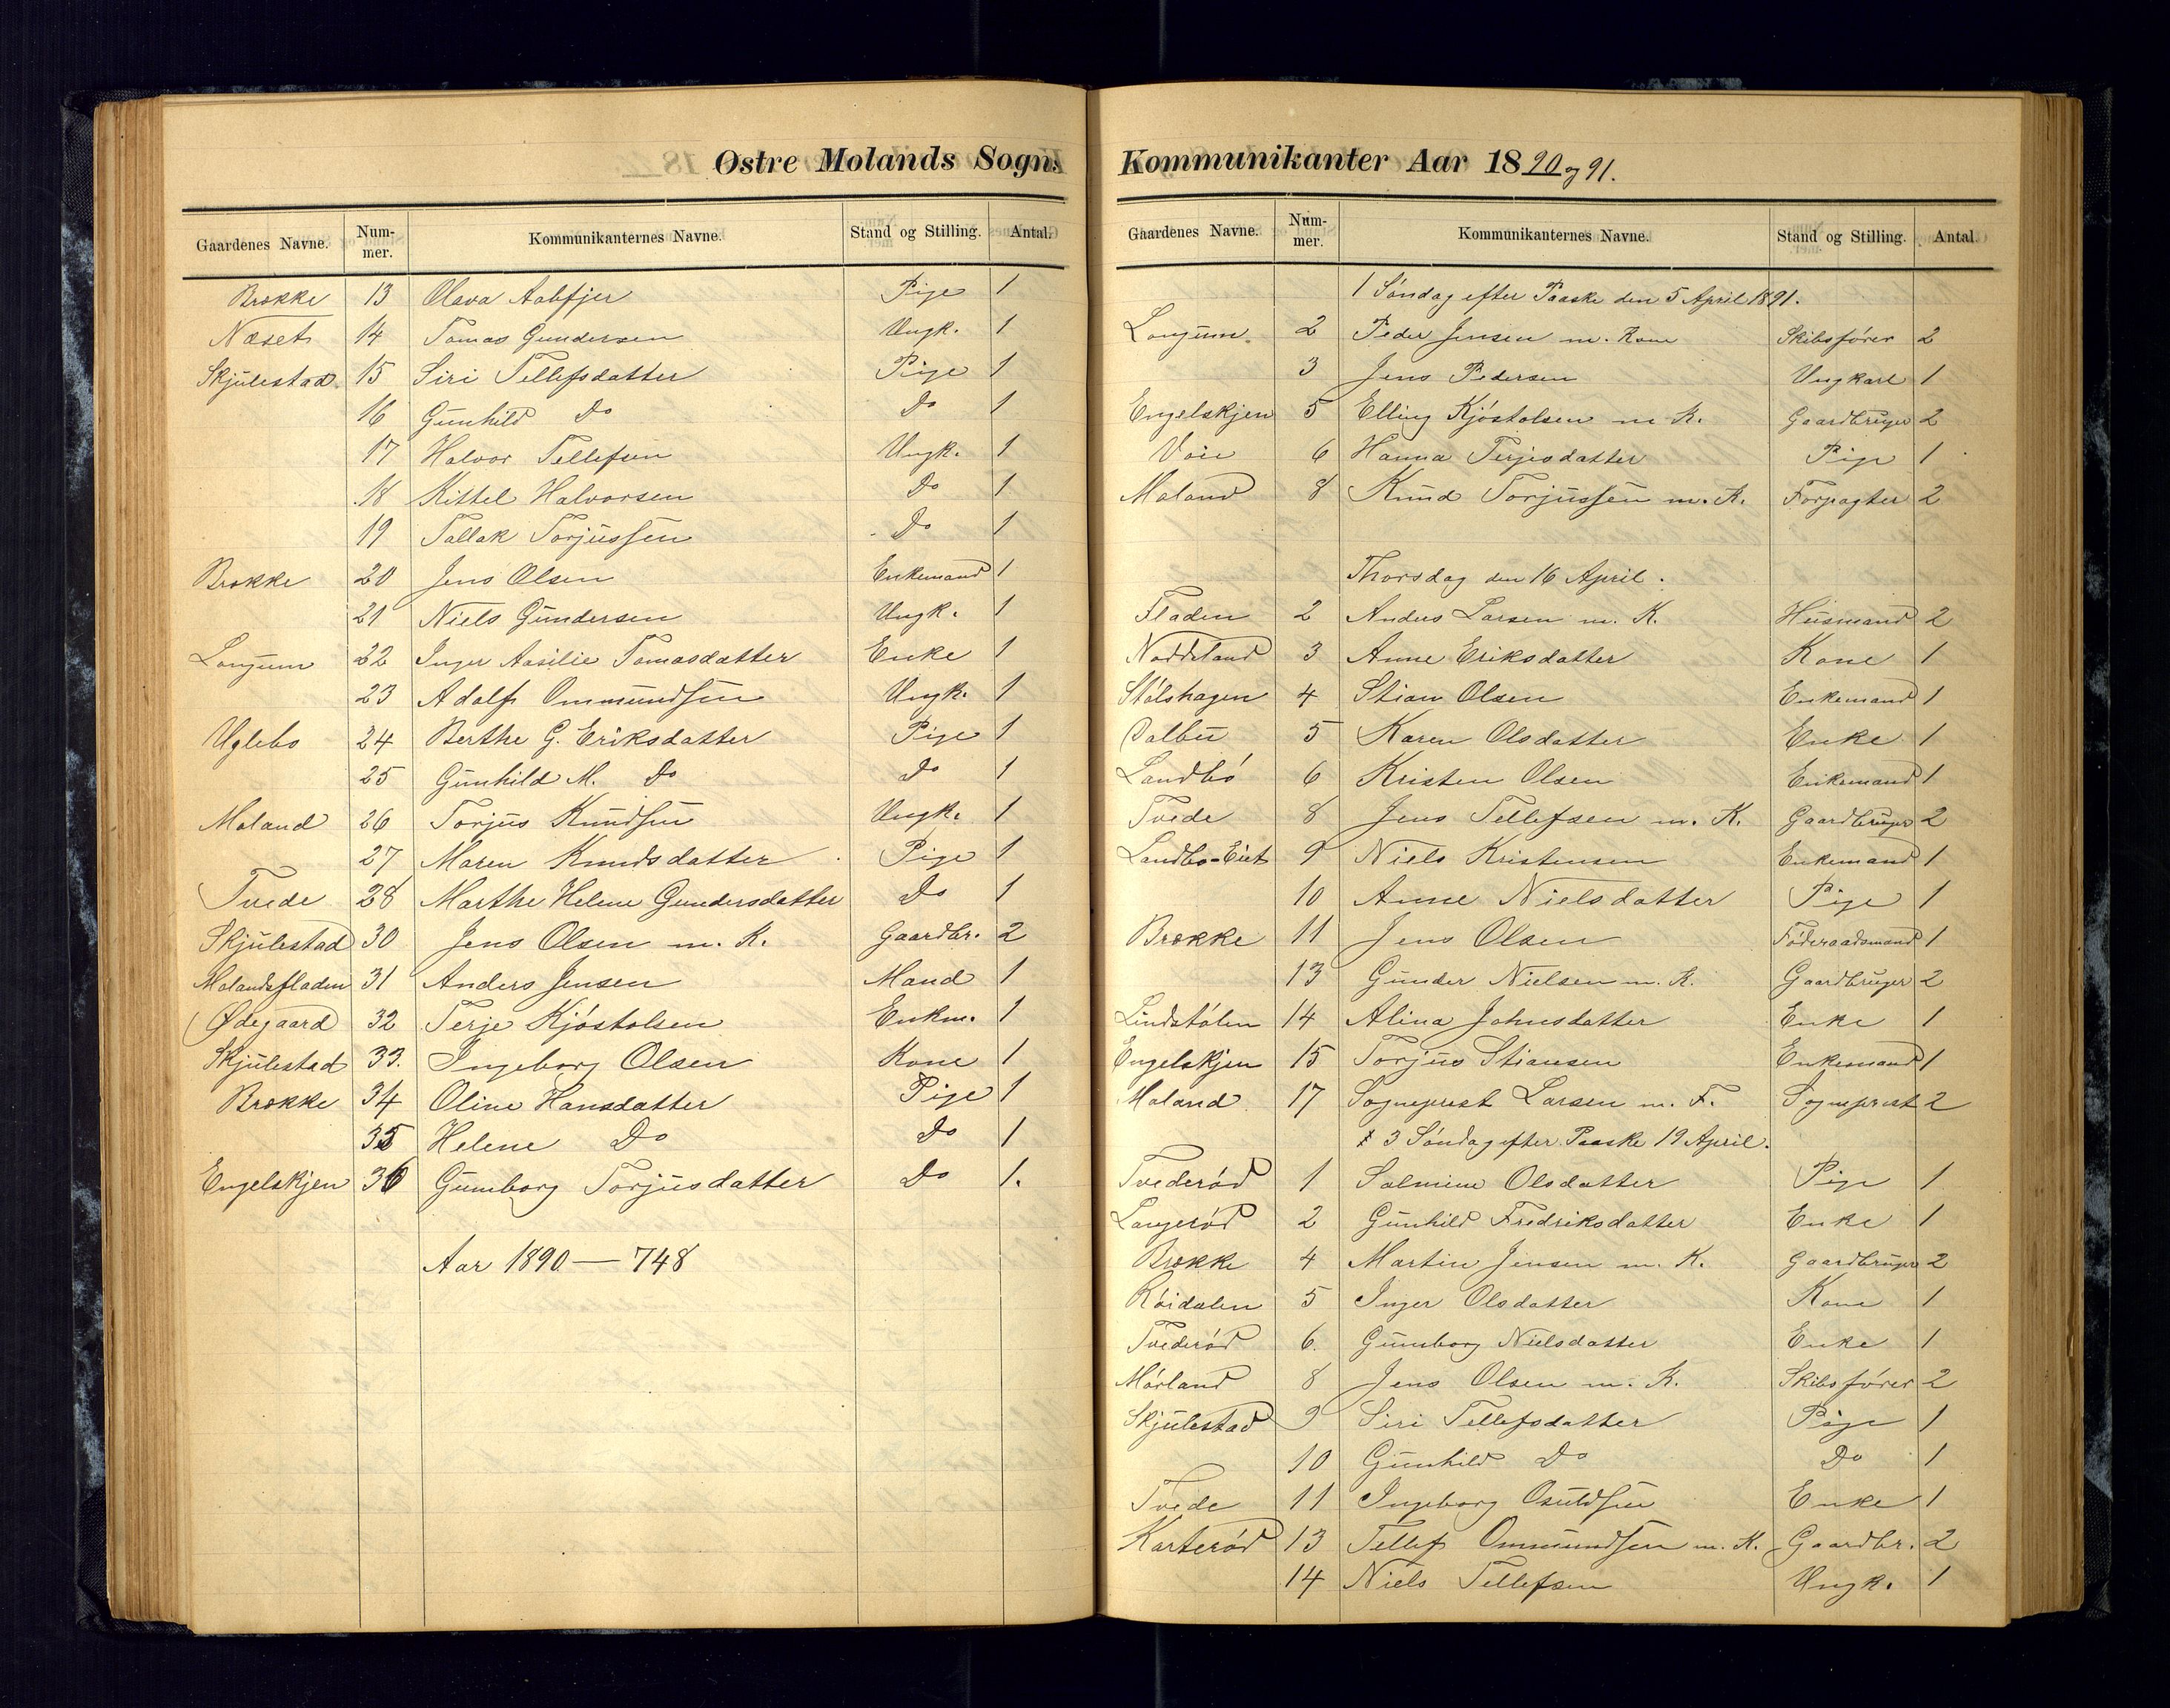 Østre Molands Sogns
Gaardenes Navne. Nummer. Kommunikanternes Navne. Stand og Stilling. Antal.
Brække 13 Olava Aabfjer Pige 1
Næset 14 Tomas Gundersen Ungk. 1
Skjulestad 15 Siri Tellefsdatter Pige 1
16 Gunhild Do Do 1
17 Halvor Tellefsen Ungk. 1
18 Kittel Halvorsen Do 1
19 Tallak Torjussen Do 1
Brække 20 Jens Olsen Enkemand 1
21 Niels Gundersen Ungk. 1
Longum 22 Inger Aasilie Tomasdatter Enke 1
23 Adolf Ommundsen Ungk. 1
Uglebo 24 Berthe G. Eriksdatter Pige 1
25 Gunhild M. Do Do 1
Moland 26 Torjus Knudsen Ungk. 1
27 Maren Knudsdatter Pige 1
Tvede 28 Marthe Helene Gundersdatter Do 1
Skjulestad 30 Jens Olsen m. K. Gaardbr. 2
Molandsfladen 31 Anders Jensen Mand 1
Ødegaard 32 Terje Kjøstolsen Enkm. 1
Skjulestad 33. Ingeborg Olsen Kone 1
Brække 34 Oline Hansdatter Pige 1
35 Helene Do Do 1
Engelskjen 36 Gunborg Torjusdatter Do 1.
Aar 1890 — 748
Kommunikanter Aar 1890 og 91.
Gaardenes Navne. Nummer. Kommunikanternes Navne. Stand og Stilling. Antal.
1 Søndag efter Paaske den 5 April 1891.
Longum 2 Peder Jensen m. Kone Skibsfører 2
3 Jens Pedersen Ungkarl 1
Engelskjen 5 Elling Kjøstolsen m K. Gaardbruger 2
Voie 6 Hanna Terjesdatter Pige 1
Moland 8 Knud Torjussen m. K. Forpagter 2
Thorsdag den 16 April.
Fladen 2 Anders Larsen m. K. Husmand 2
Noddeland 3 Anne Eriksdatter Kone 1
Stølshagen 4 Stian Olsen Enkemand 1
Dalbu 5 Karen Olsdatter Enke 1
Landbø 6 Kristen Olsen Enkemand 1
Tvede 8 Jens Tellefsen m. K. Gaardbruger 2
Landbø-Eiet 9 Niels Kristensen Enkemand 1
10 Anne Nielsdatter Pige 1
Brække 11 Jens Olsen Føderaadsmand 1
13 Gunder Nielsen m. K. Gaardbruger 2
Lindstølen 14 Alina Johnsdatter Enke 1
Engelskjen 15 Torjus Stiansen Enkemand 1
Moland 17 Sogneprest Larsen m. F. Sogneprest 2
3 Søndag efter Paaske 19 April.
Tvederød 1 Salmine Olsdatter Pige 1
Langerød 2 Gunhild Fredriksdatter Enke 1
Brække 4 Martin Jensen m. K. Gaardbruger 2
Røidalen 5 Inger Olsdatter Kone 1
Tvederød 6. Gunborg Nielsdatter Enke 1
Mørland 8 Jens Olsen m. K. Skibsfører 2
Skjulestad 9 Siri Tellefsdatter Pige 1
10 Gunhild Do Do 1
Tvede 11 Ingeborg Osuldsen Enke 1
Karterød 13 Tellef Ommundsen m. K. Gaardbr. 2
14 Niels Tellefsen Ungk. 1